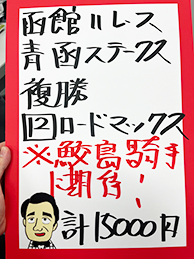 函館11レース
青函ステークス
複勝
⑫ロードマックス
※鮫島騎手
に期待!
計15000円